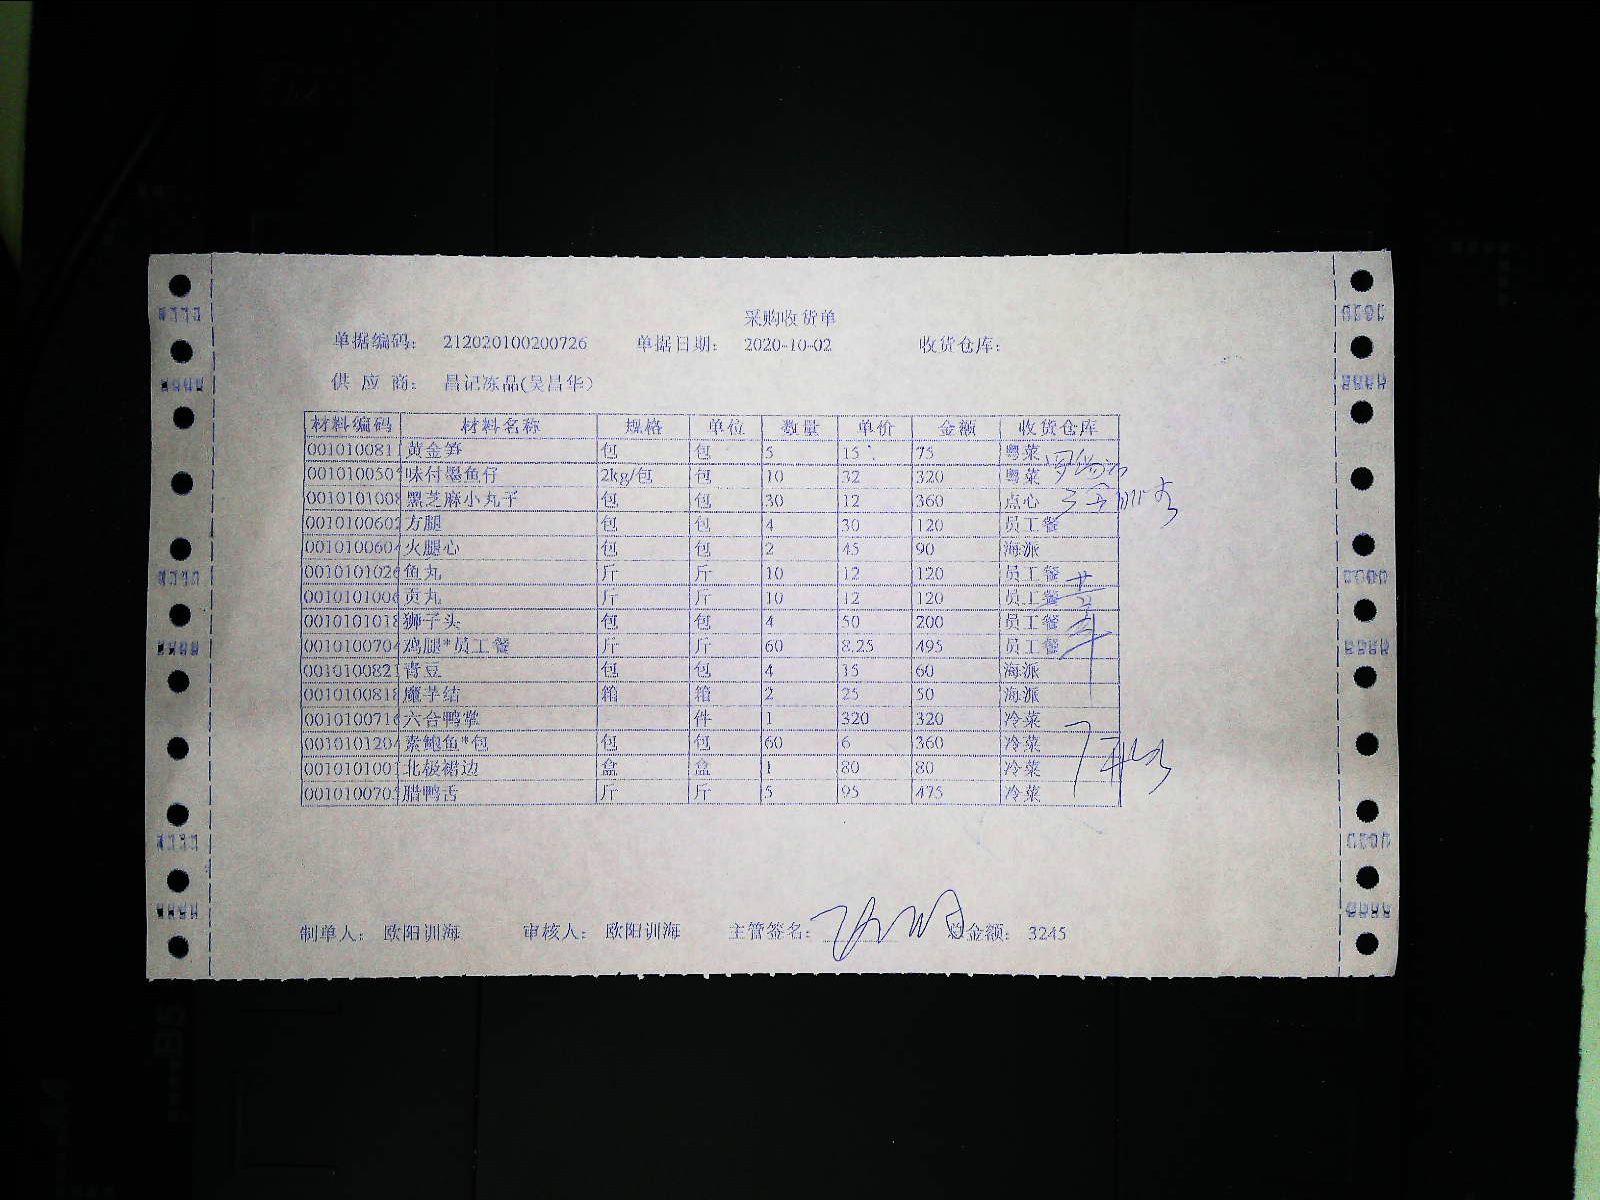 采购收货单
单据编码: 212020100200726 单据日期: 2020-10-02 收货仓库:
供 应 商: 昌记冻品(吴昌华)
材料编码 材料名称 规格 单位 数量 单价 金额 收货仓库
001010081 黄金笋 包 包 5 15 75 粤菜
00101005 味付墨鱼仔 2kg/包 包 10 32 320 粤菜
001010100 黑芝麻小丸子 包 包 30 12 360 点心
001010060 方腿 包 包 4 30 120 员工餐
001010060 火腿心 包 包 2 45 90 海派
001010102 鱼丸 斤 斤 10 12 120 员工餐
001010100 贡丸 斤 斤 10 12 120 员工餐
001010101 狮子头 包 包 4 50 200 员工餐
001010070 鸡腿*员工餐 斤 斤 60 8.25 495 员工餐
001010082 青豆 包 包 4 15 60 海派
001010081 魔芋结 箱 箱 2 25 50 海派
001010071 六合鸭掌 件 1 320 320 冷菜
001010120 素鲍鱼*包 包 包 60 6 360 冷菜
001010100 北极裙边 盒 盒 1 80 80 冷菜
001010070 腊鸭舌 斤 斤 5 95 475 冷菜
制单人: 欧阳训海 审核人: 欧阳训海 主管签名: 总金额: 3245